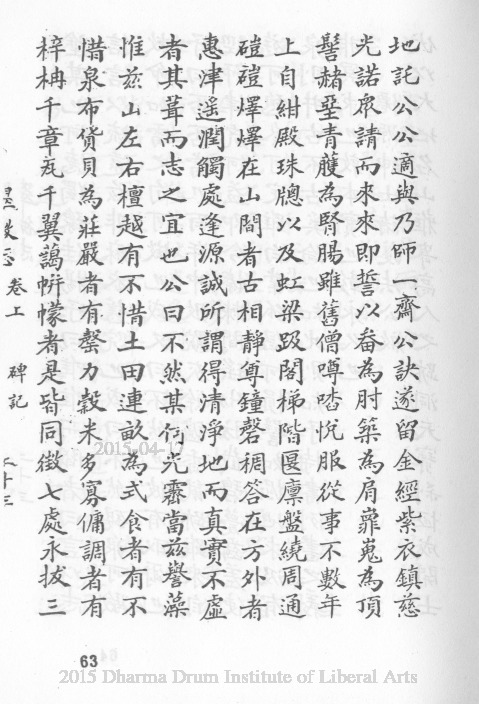 地託公公適與乃師一齋公訣遂留金經紫衣鎮慈
光諾眾請而來來即誓以畚為肘築為肩嶵嵬為頂
髻赭堊青雘為腎腸雖舊僧噂喈悅服從事不數年
上自紺殿珠牕以及虹梁跋閣梯階匽廩盤繞周通
磑磑燡燡在山間者古相靜尊鐘磬稠答在方外者
惠津遥潤觸處逢源誠所謂得清淨地而真實不虛
者其葺而志之宜也公曰不然其何冘霨當茲譽藻
惟茲山左右檀越有不惜土田連畝為式食者有不
惜泉布貨貝為莊嚴者有罄力穀米多寡傭調者有
梓柟千章瓦千翼藹帡幪者是皆同徵七處永拔三
卷上 碑記
63
2015-04-
2015 Dharma Drum Institute of Liberal Arts